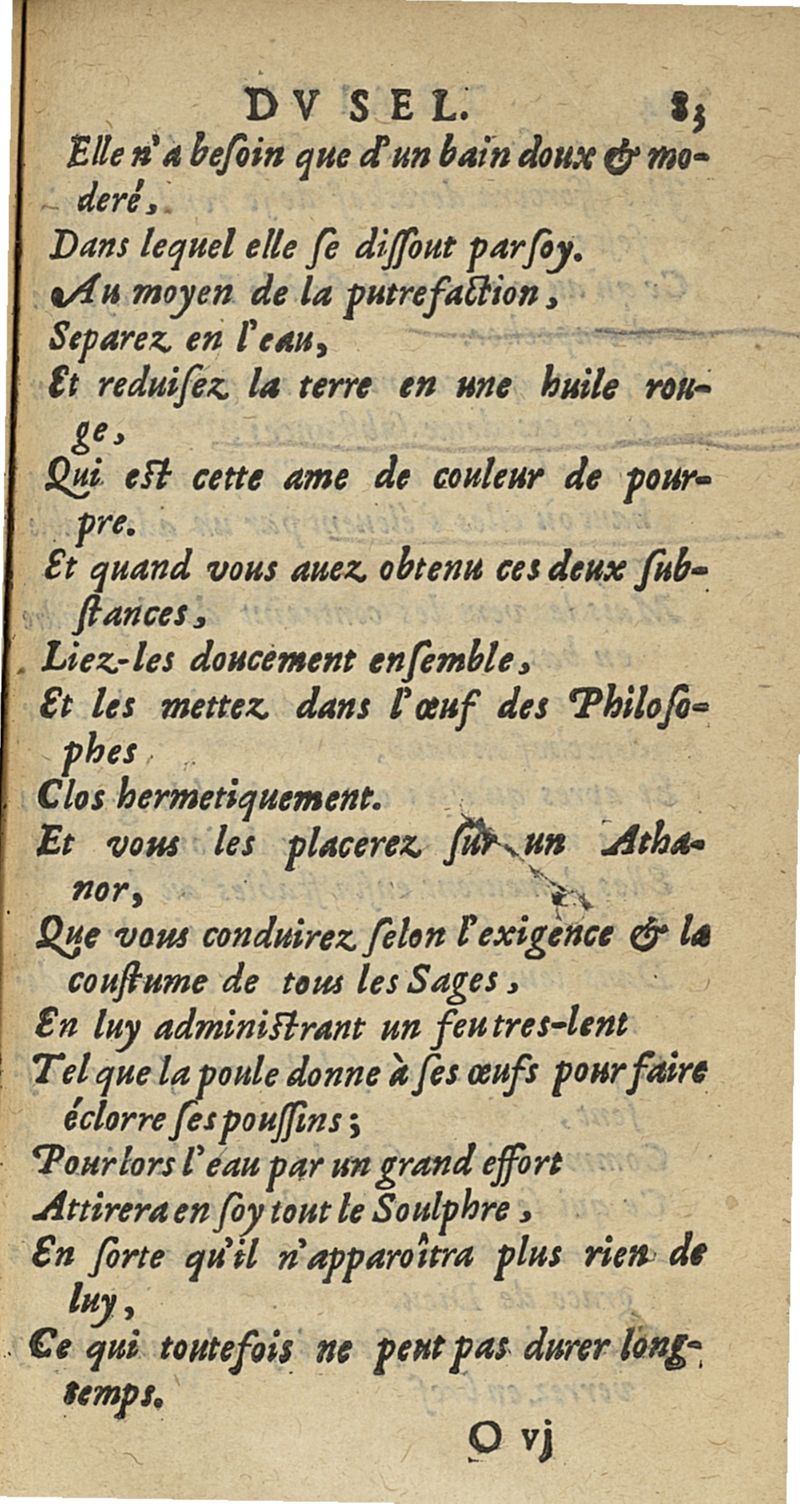 DV SEL. 83
Elle n'a beſoin que d'un bain doux & mo-
deré,
Dans lequel elle ſe diſſout par ſoy.
Au moyen de la putrefaction,
Separez en l'eau,
Et reduiſez la terre en une huile rou-
ge,
Qui est cette ame de couleur de pour-
pre.
Et quand vous auez obtenu ces deux ſub-
ſtances,
Liez-les doucement enſemble,
Et les mettez dans l'œuf des Philoſo-
phes
Clos hermetiquement.
Et vous les placerez ſur un Atha-
nor,
Que vous conduirez ſelon l'exigence & la
couſtume de tous les Sages,
En luy adminiſtrant un feu tres-lent
Tel que la poule donne à ſes œufs pour faire
éclorre ſes pouſſins;
Pour lors l'eau par un grand effort
Attirera en ſoy tout le Soulphre,
En ſorte qu'il n'apparoîtra plus rien de
luy,
Ce qui toutefois ne peut pas durer long-
temps.
O vj